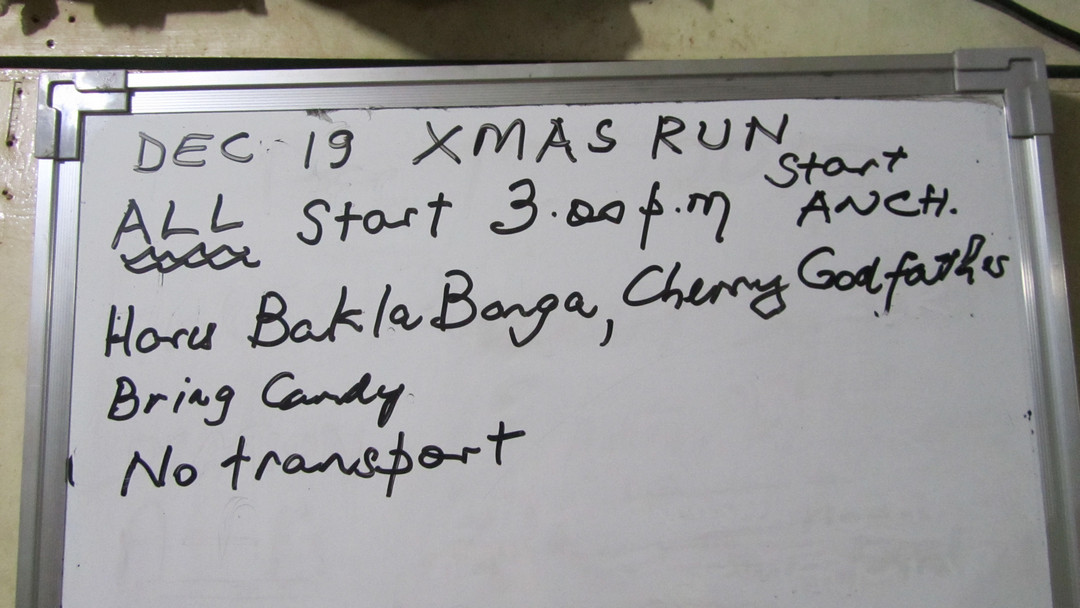 DEC 19 XMAS RUN
ALL Start 3.00 p.m Start ANCH.
Hares Bakla Bonga, Cherry Godfather
Bring Candy
No transport